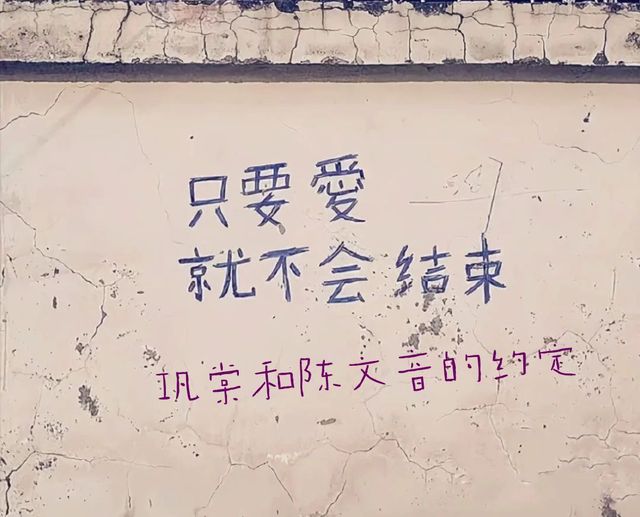 只要愛
就不会结束
巩棠和陈文音的约定